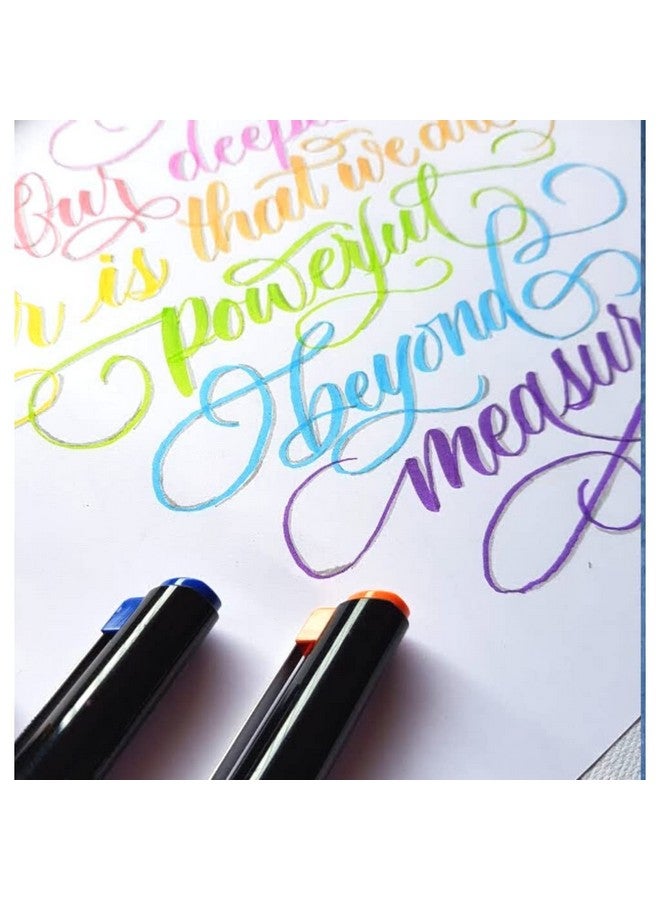 Our deepe
r is that we are
powerful
beyond
measur